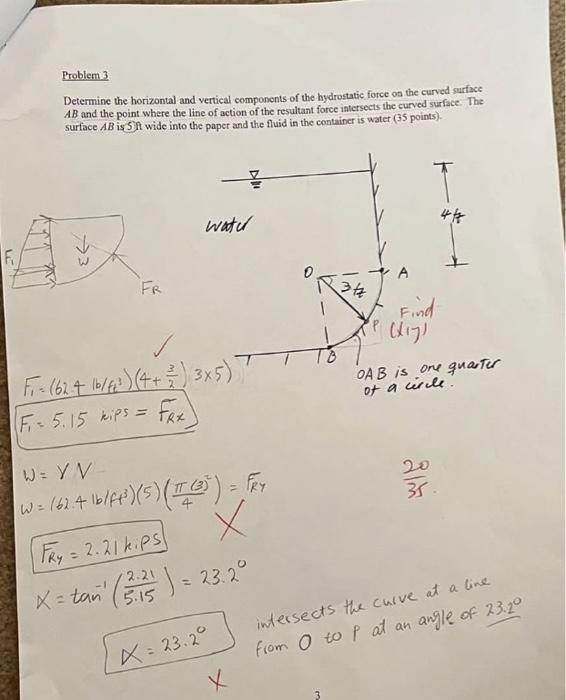 Problem 3
Determine the horizontal and vertical components of the hydrostatic force on the curved surface
AB and the point where the line of action of the resultant force intersects the curved surface. The
surface AB is 5 ft wide into the paper and the fluid in the container is water (35 points).
water
4 ft
F₁
W
FR
O
A
3 ft
P
Find
(x,y)
B
OAB is one quarter
of a circle.
F₁ = (62.4 lb/ft³)(4 + 3/2) 3x5)
F₁ = 5.15 kips = FRx
W = γ V
W = (62.4 lb/ft³)(5)(π(3)²/4) = FRY
20/35.
FRy = 2.21 kips
α = tan⁻¹ (2.21/5.15) = 23.2°
α = 23.2°
intersects the curve at a line
from O to P at an angle of 23.2°
3